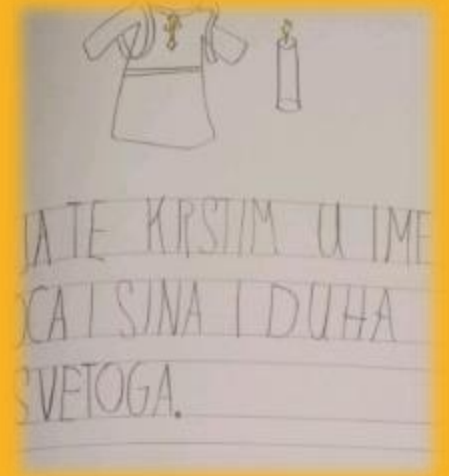 JA TE KRSTIM U IME
OCA I SINA I DUHA
SVETOGA.